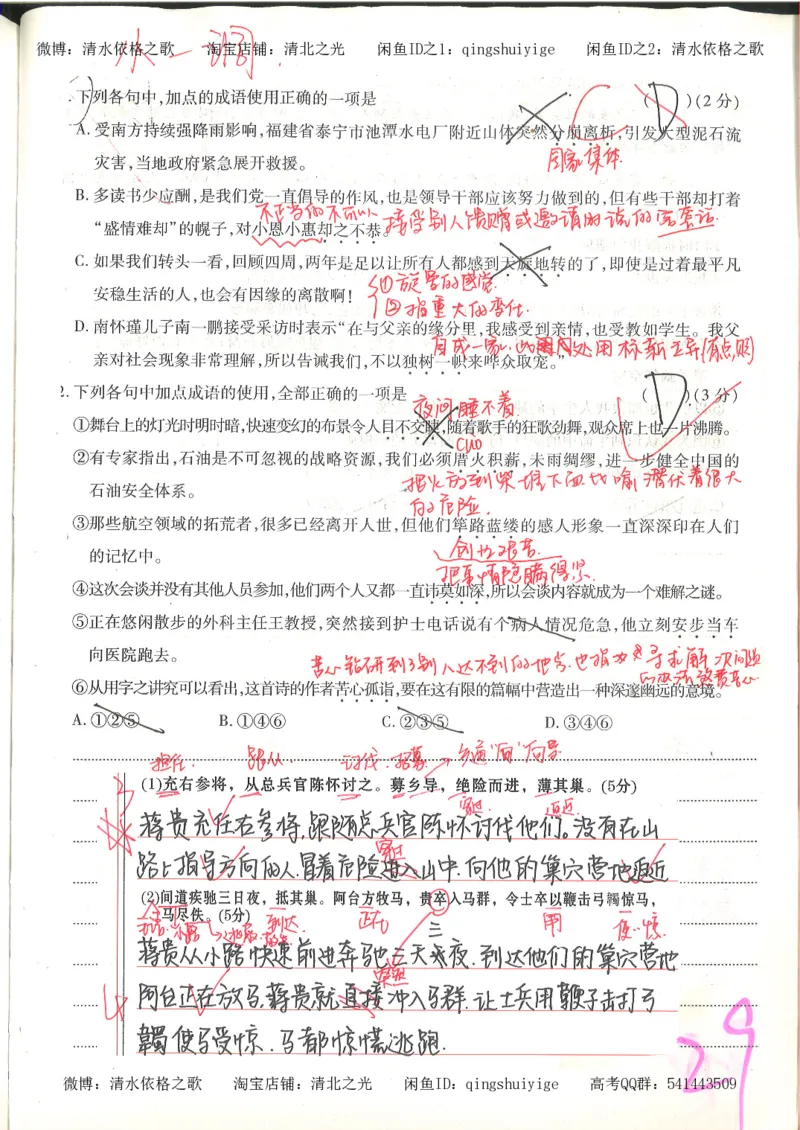 微博：清水依格之歌 淘宝店铺：清北之光 闲鱼ID之1：qingshuiyige 闲鱼ID之2：清水依格之歌
水一调
下列各句中,加点的成语使用正确的一项是 ( D )(2分)
A. 受南方持续强降雨影响,福建省泰宁市池潭水电厂附近山体突然分崩离析,引发大型泥石流
国家集体
灾害,当地政府紧急展开救援。
B. 多读书少应酬,是我们党一直倡导的作风,也是领导干部应该努力做到的,但有些干部却打着
不正当的不可以 接受别人馈赠或邀请时说的客套话
“盛情难却”的幌子,对小恩小惠却之不恭。
C. 如果我们转头一看,回顾四周,两年是足以让所有人都感到天旋地转的了,即使是过着最平凡
①旋晕的感觉
安稳生活的人,也会有因缘的离散啊!
②指重大的变化
D. 南怀瑾儿子南一鹏接受采访时表示“在与父亲的缘分里,我感受到亲情,也受教如学生。我父
自成一家 处用标新立异
亲对社会现象非常理解,所以告诫我们,不以独树一帜来哗众取宠。”
2. 下列各句中加点成语的使用,全部正确的一项是 ( D )(3分)
夜间睡不着
①舞台上的灯光时明时暗,快速变幻的布景令人目不交睫,随着歌手的狂歌劲舞,观众席上也一片沸腾。
CUO
②有专家指出,石油是不可忽视的战略资源,我们必须厝火积薪,未雨绸缪,进一步健全中国的
把火放到柴堆下面比喻潜伏着很大
石油安全体系。
的危险.
③那些航空领域的拓荒者,很多已经离开人世,但他们筚路蓝缕的感人形象一直深深印在人们
创业艰苦
的记忆中。
把事情隐瞒得紧.
④这次会谈并没有其他人员参加,他们两个人又都一直讳莫如深,所以会谈内容就成为一个难解之谜。
⑤正在悠闲散步的外科主任王教授,突然接到护士电话说有个病人情况危急,他立刻安步当车
向医院跑去。
苦心钻研到了别人达不到的地步.也指为寻求解决问题
的办法煞费苦心
⑥从用字之讲究可以看出,这首诗的作者苦心孤诣,要在这有限的篇幅中营造出一种深邃幽远的意境。
A. ①②⑤ B. ①④⑥ C. ②③⑤ D. ③④⑥
担任. 跟从 讨伐.招募 乡道“向”向导
(1)充右参将，从总兵官陈怀讨之。募乡导，绝险而进，薄其巢。(5分)
逼近
蒋贵充任右参将,跟随总兵官陈怀讨伐他们。没有在山
路上指导方向的人.冒着危险进入山中.向他的巢穴营地逼近
(2)间道疾驰三日夜，抵其巢。阿台方牧马，贵卒入马群，令士卒以鞭击弓韣惊马，
马尽佚。(5分)
小路 到达 正在 用
蒋贵从小路快速前进奔驰三天三夜.到达他们的巢穴营地
突然
阿台正在放马.蒋贵就直接冲入马群.让士兵用鞭子击打弓
韣使马受惊.马都惊慌逃跑.
29
微博：清水依格之歌 淘宝店铺：清北之光 闲鱼ID：qingshuiyige 高考QQ群：541443509